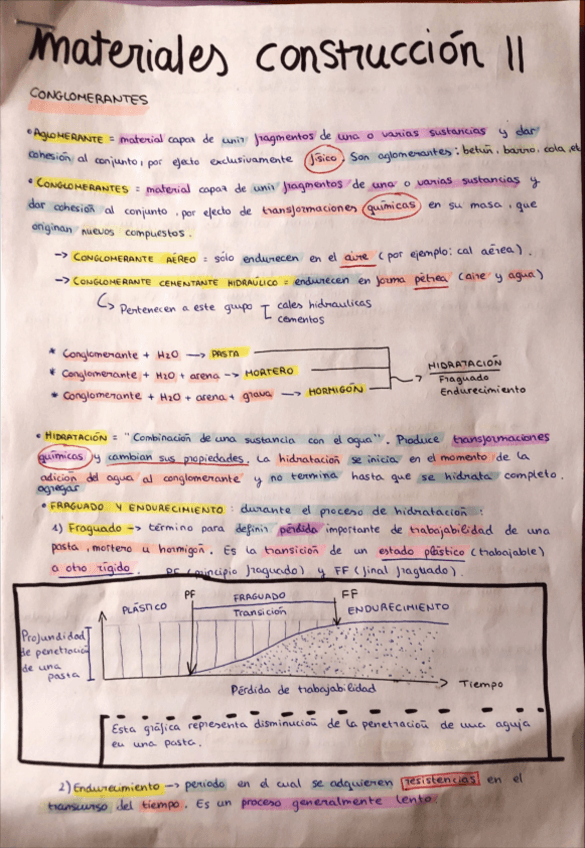 materiales construcción II
CONGLOMERANTES
• AGLOMERANTE = material capaz de unir fragmentos de una o varias sustancias y dar
cohesión al conjunto, por efecto exclusivamente físico. Son aglomerantes: betún, barro, cola, et
• CONGLOMERANTES = material capaz de unir fragmentos de una o varias sustancias y
dar cohesión al conjunto, por efecto de transformaciones químicas en su masa, que
originan nuevos compuestos.
→ CONGLOMERANTE AÉREO = sólo endurecen en el aire (por ejemplo: cal aérea).
→ CONGLOMERANTE CEMENTANTE HIDRAÚLICO = endurecen en forma pétrea (aire y agua)
↳ Pertenecen a este grupo [ cales hidraulicas
cementos
* Conglomerante + H2O → PASTA
* Conglomerante + H2O + arena → MORTERO
* Conglomerante + H2O + arena + grava → HORMIGÓN
HIDRATACIÓN
Fraguado
Endurecimiento
• HIDRATACIÓN = "Combinación de una sustancia con el agua". Produce transformaciones
químicas y cambian sus propiedades. La hidratación se inicia en el momento de la
adición del agua al conglomerante y no termina hasta que se hidrata completo.
agregar
• FRAGUADO Y ENDURECIMIENTO: durante el proceso de hidratación:
1) Fraguado → término para definir pérdida importante de trabajabilidad de una
pasta, mortero u hormigón. Es la transición de un estado plástico (trabajable)
a otro rígido. PF (principio fraguado) y FF (final fraguado).
PLÁSTICO PF FRAGUADO FF
Transición ENDURECIMIENTO
Profundidad
de penetración
de una
pasta
Tiempo
Pérdida de trabajabilidad
Esta gráfica representa disminución de la penetración de una aguja
en una pasta.
2) Endurecimiento → periodo en el cual se adquieren resistencias en el
transcurso del tiempo. Es un proceso generalmente lento.